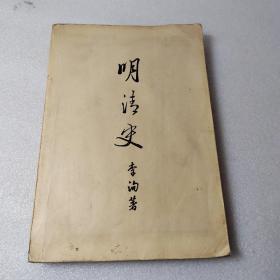 明清史
李洵著